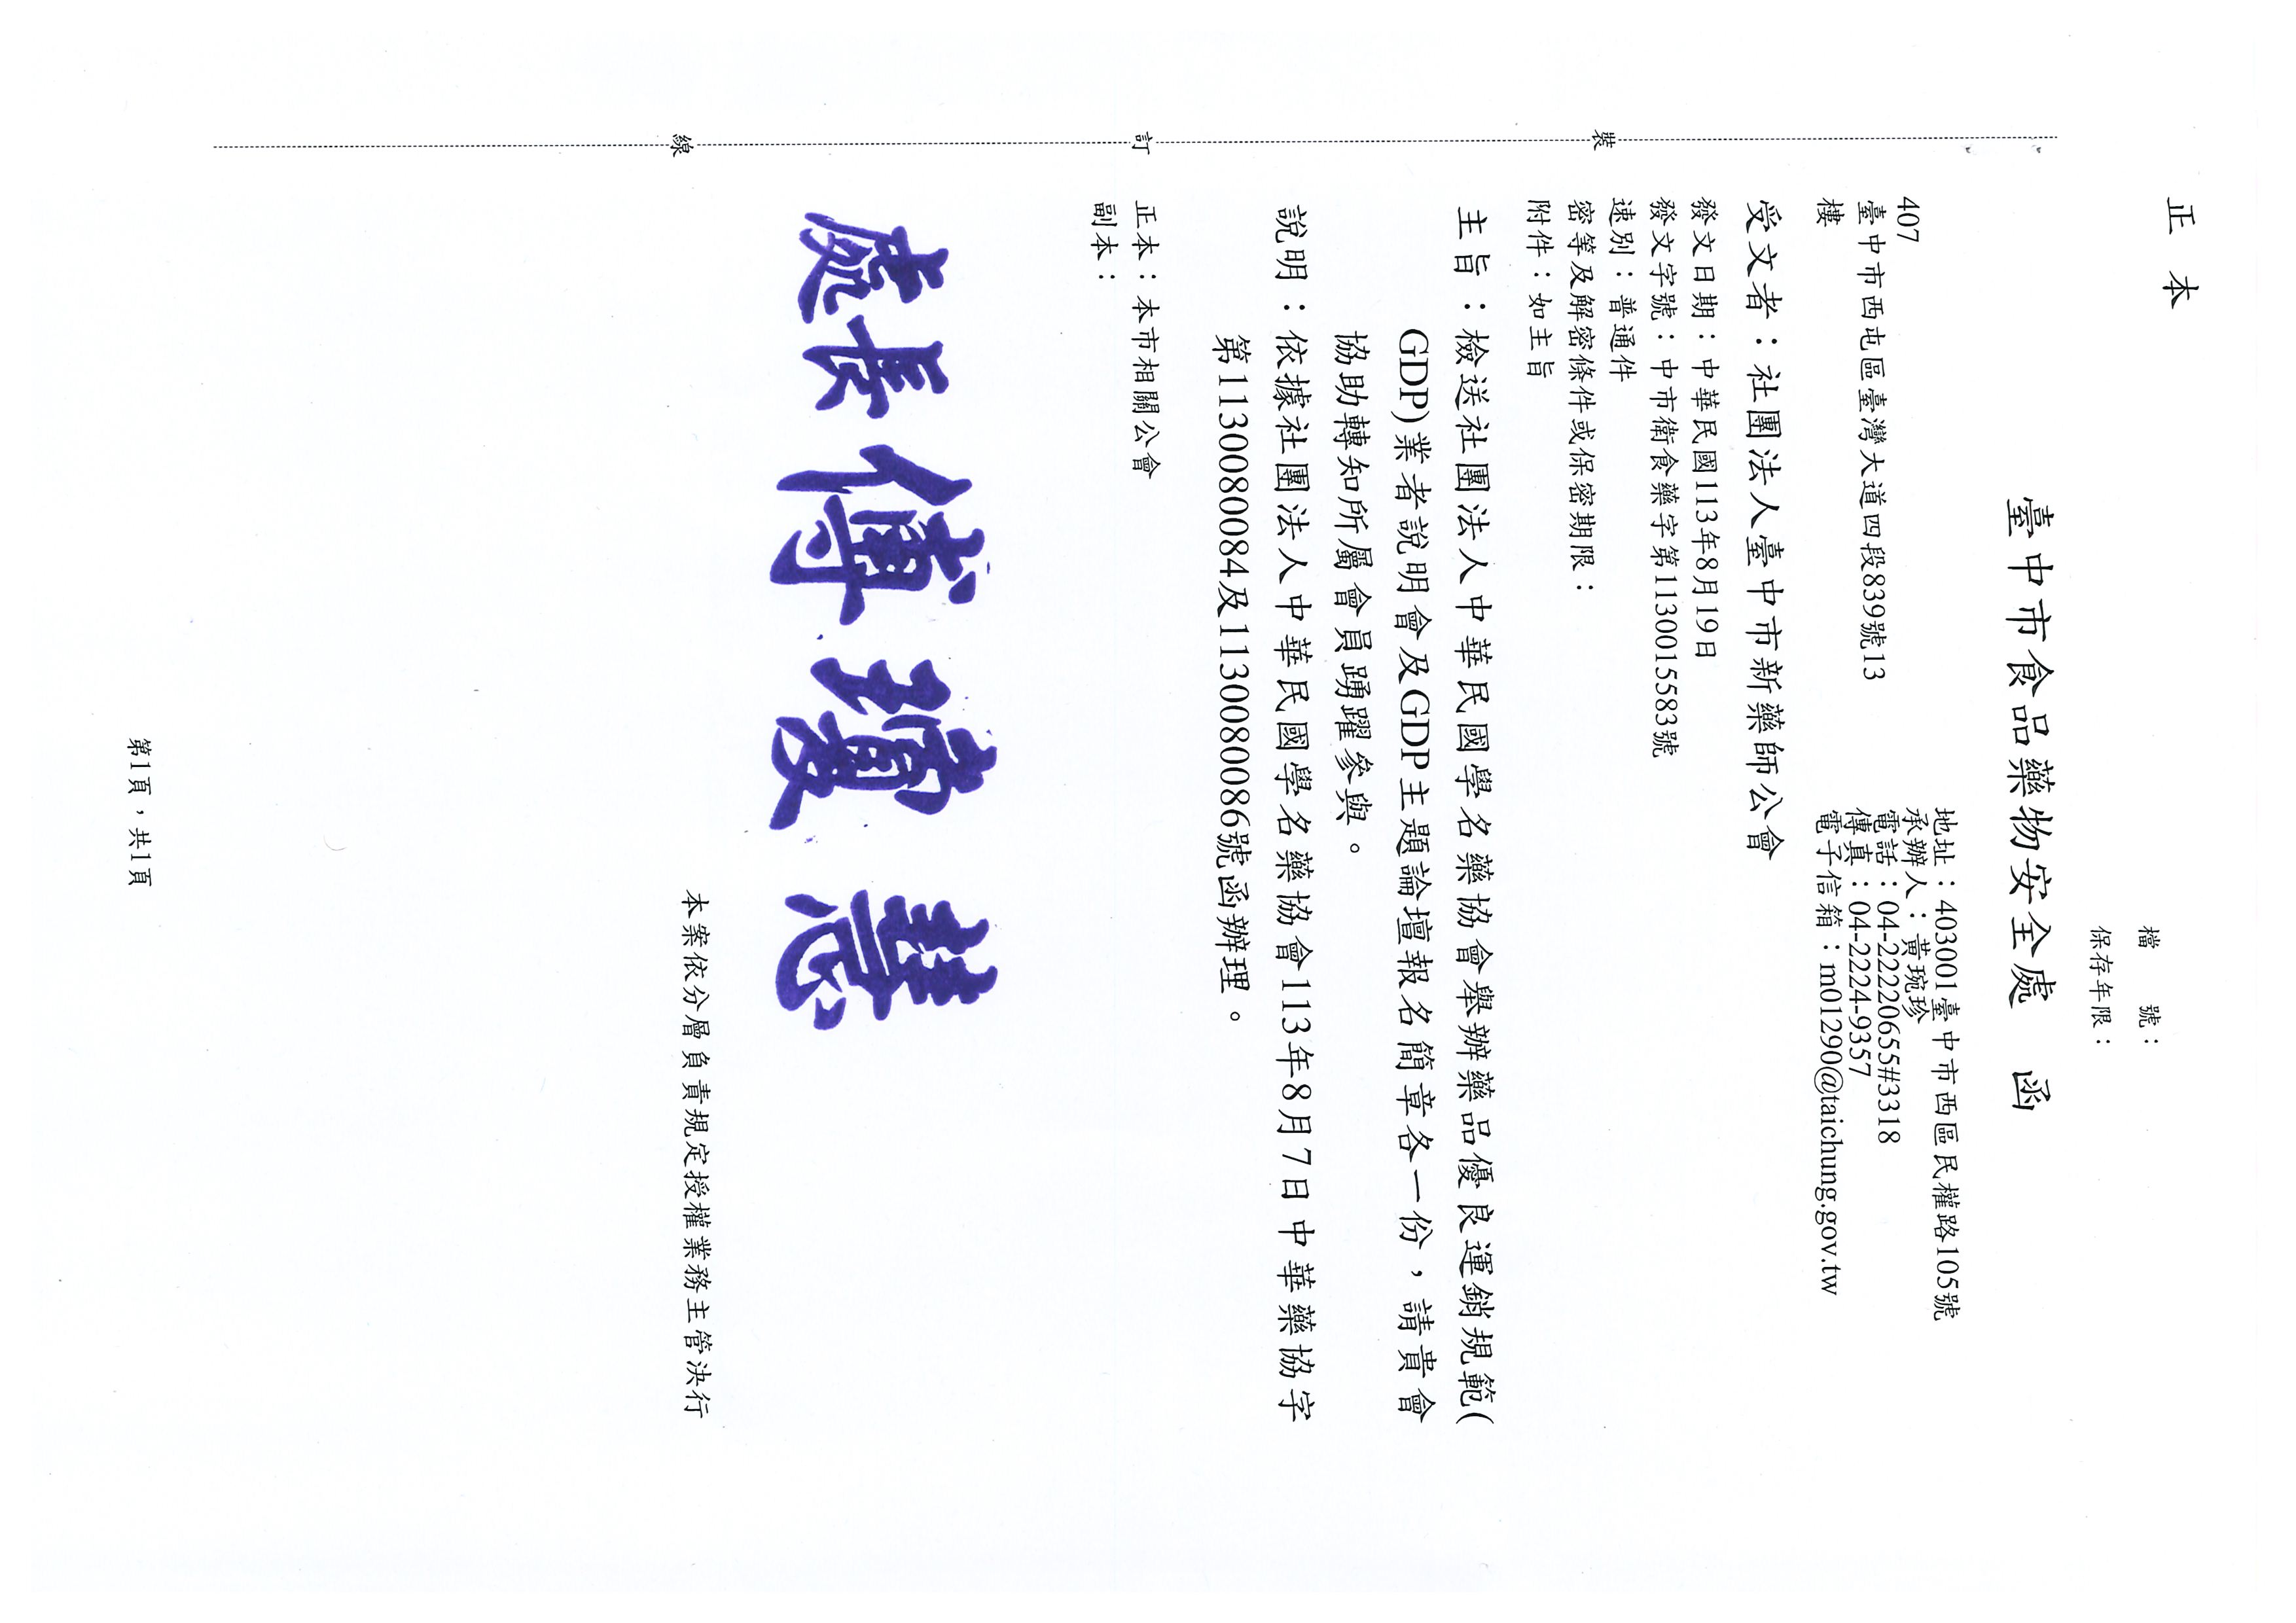 正本
檔　　號：
保存年限：
臺中市食品藥物安全處　函
地址：403001臺中市西區民權路105號
承辦人：黃琬珍
電話：04-22220655#3318
傳真：04-2224-9357
電子信箱：m01290@taichung.gov.tw
407
臺中市西屯區臺灣大道四段839號13
樓
受文者：社團法人臺中市新藥師公會
發文日期：中華民國113年8月19日
發文字號：中市衛食藥字第1130015583號
速別：普通件
密等及解密條件或保密期限：
附件：如主旨
主旨：檢送社團法人中華民國學名藥協會舉辦藥品優良運銷規範(
GDP)業者說明會及GDP主題論壇報名簡章各一份，請貴會
協助轉知所屬會員踴躍參與。
說明：依據社團法人中華民國學名藥協會113年8月7日中華藥協字
第1130080084及1130080086號函辦理。
正本：本市相關公會
副本：
處長傅瓊慧
本案依分層負責規定授權業務主管決行
裝
訂
線
第1頁，共1頁